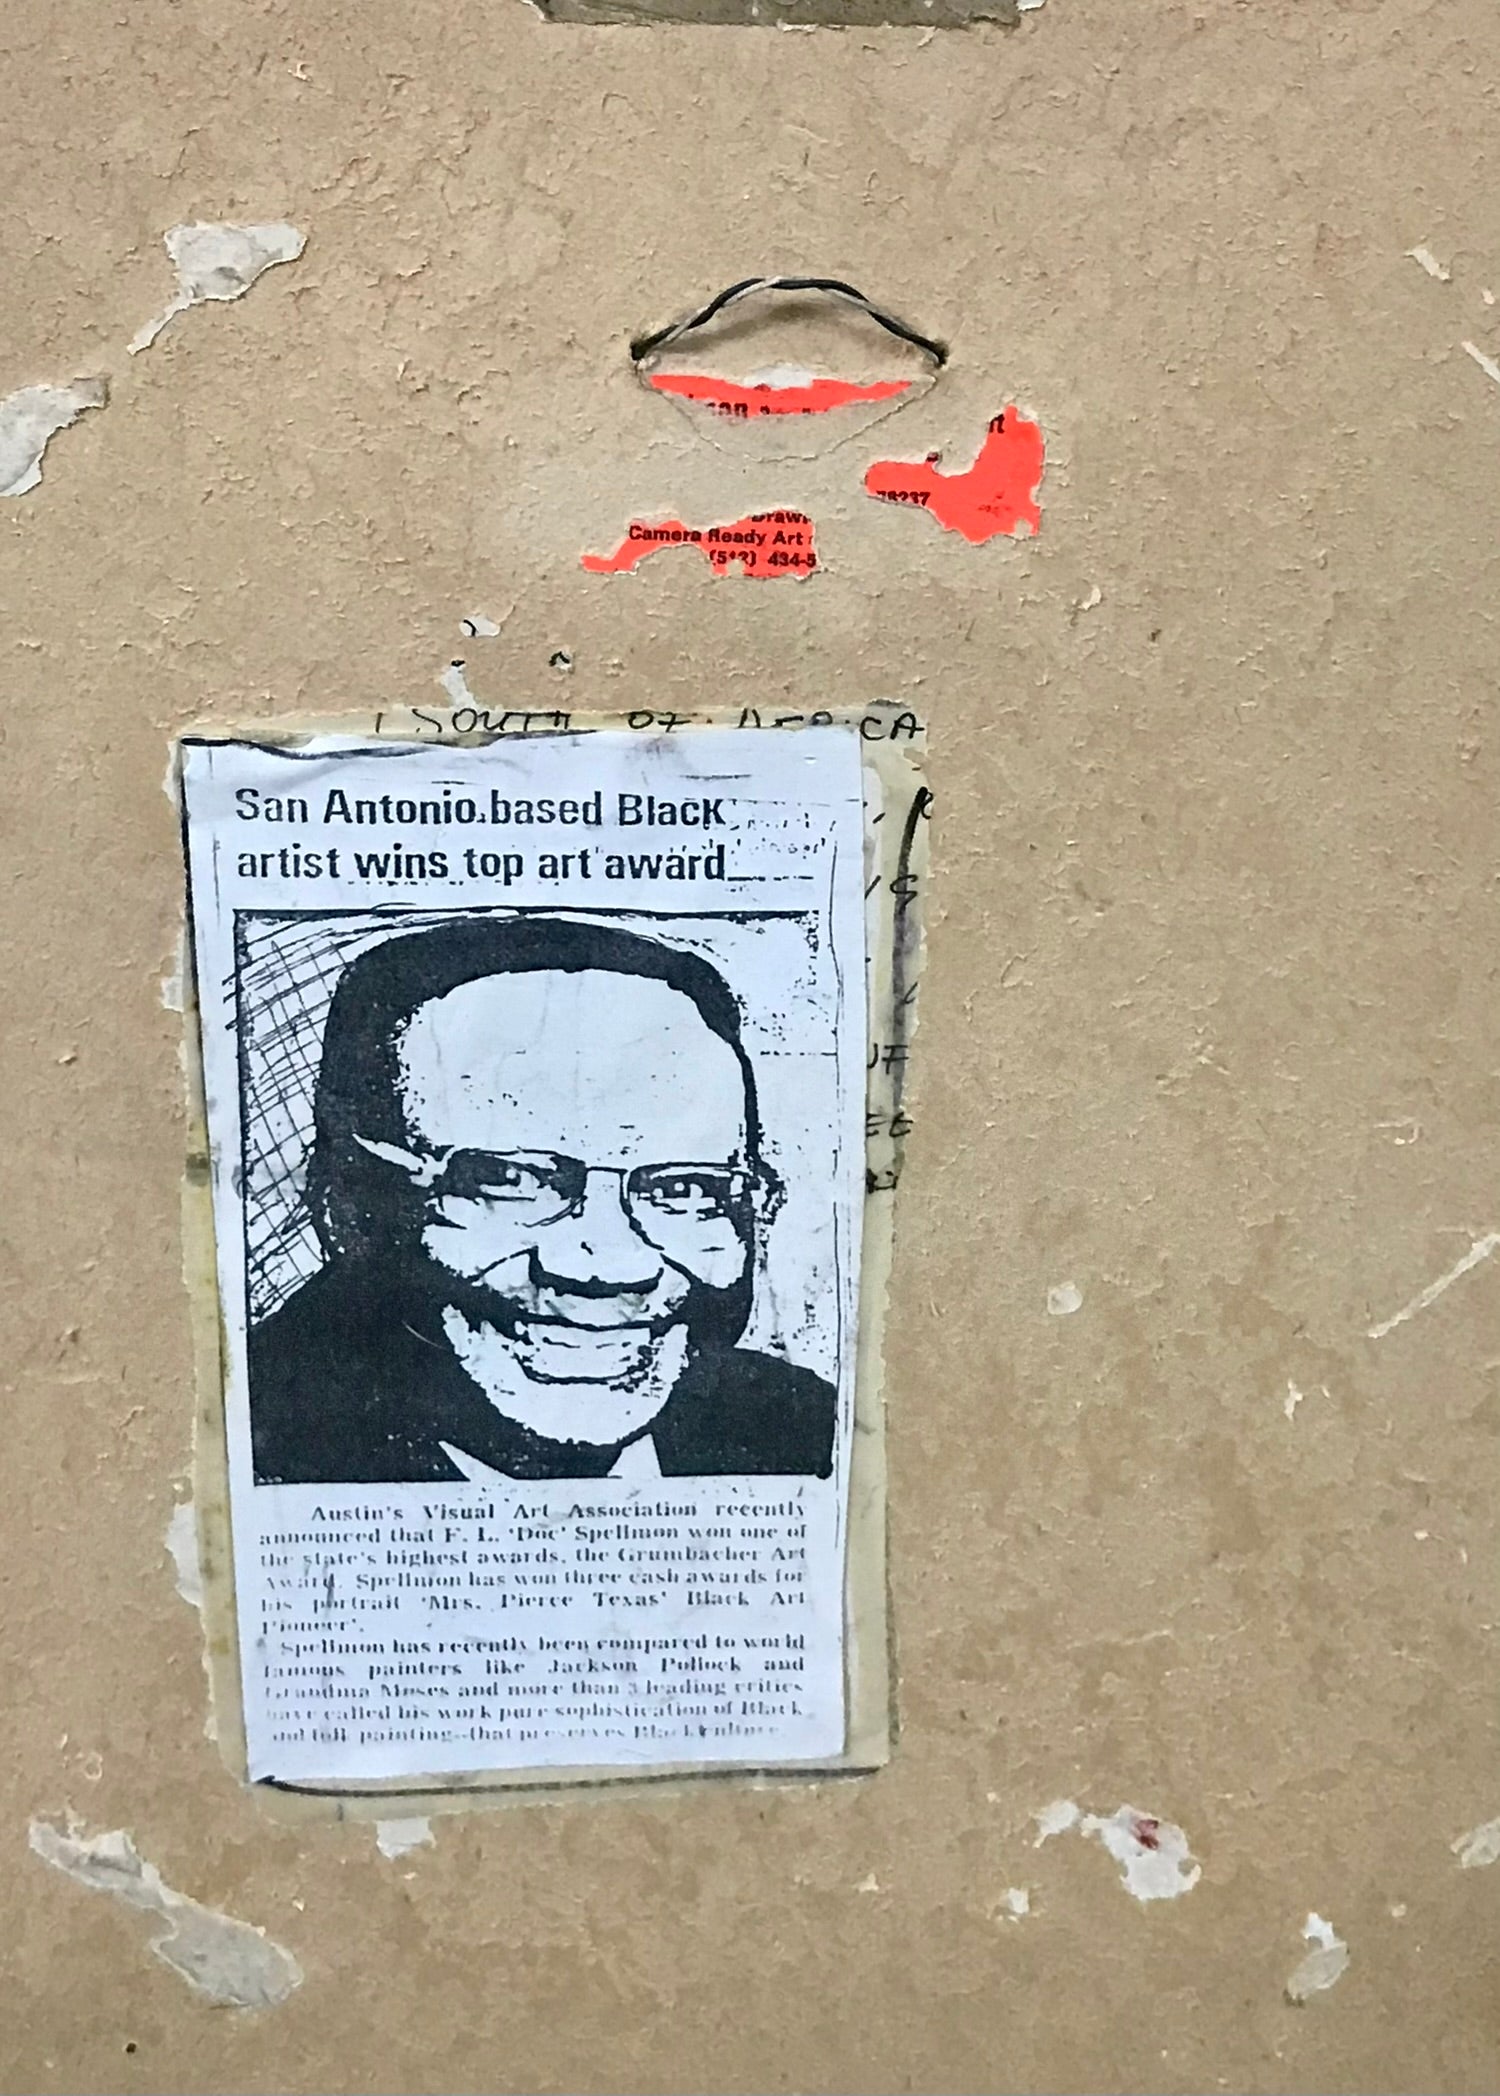 78237
Camera Ready Art
434-5
SOUTH OF
San Antonio based Black
artist wins top art award
Austin's Visual Art Association recently
announced that F. L. 'Doc' Spellmon won one of
the state's highest awards, the Grumbacher Art
Award. Spellmon has won three cash awards for
his portrait 'Mrs. Pierce Texas' Black Art
Pioneer'.
Spellmon has recently been compared to world
famous painters like Jackson Pollock and
Grandma Moses and more than 3 leading critics
have called his work pure sophistication of Black
and folk painting--that preserves Black culture.